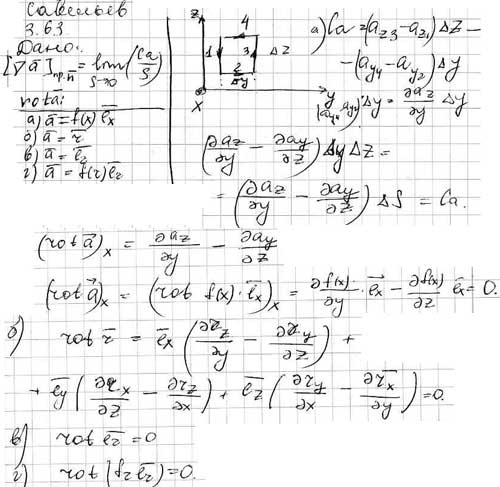 Савельев
3.63
Дано:
[∇ā]пр.n̄ = lim S→0 (Ca/S)
rot ā:
а) ā = f(x) ēx
б) ā = r̄
в) ā = ēr
г) ā = f(r) ēr
z
4
1 3 Δz
2
Δy
y
x
а) Ca = (az3 - az1) Δz -
- (ay4 - ay2) Δy
(ay4 - ay2) Δy = ∂az/∂y Δy
(∂az/∂y - ∂ay/∂z) Δy Δz =
= (∂az/∂y - ∂ay/∂z) ΔS = Ca.
(rot ā)x = ∂az/∂y - ∂ay/∂z
(rot a⃗)x = (rot f(x)·ēx)x = ∂f(x)/∂y · e⃗x - ∂f(x)/∂z ēx = 0.
б) rot r̄ = ēx (∂rz/∂y - ∂ry/∂z) +
+ ēy (∂rx/∂z - ∂rz/∂x) + ēz (∂ry/∂x - ∂rx/∂y) = 0.
в) rot ēr = 0
г) rot (fr ēr) = 0.